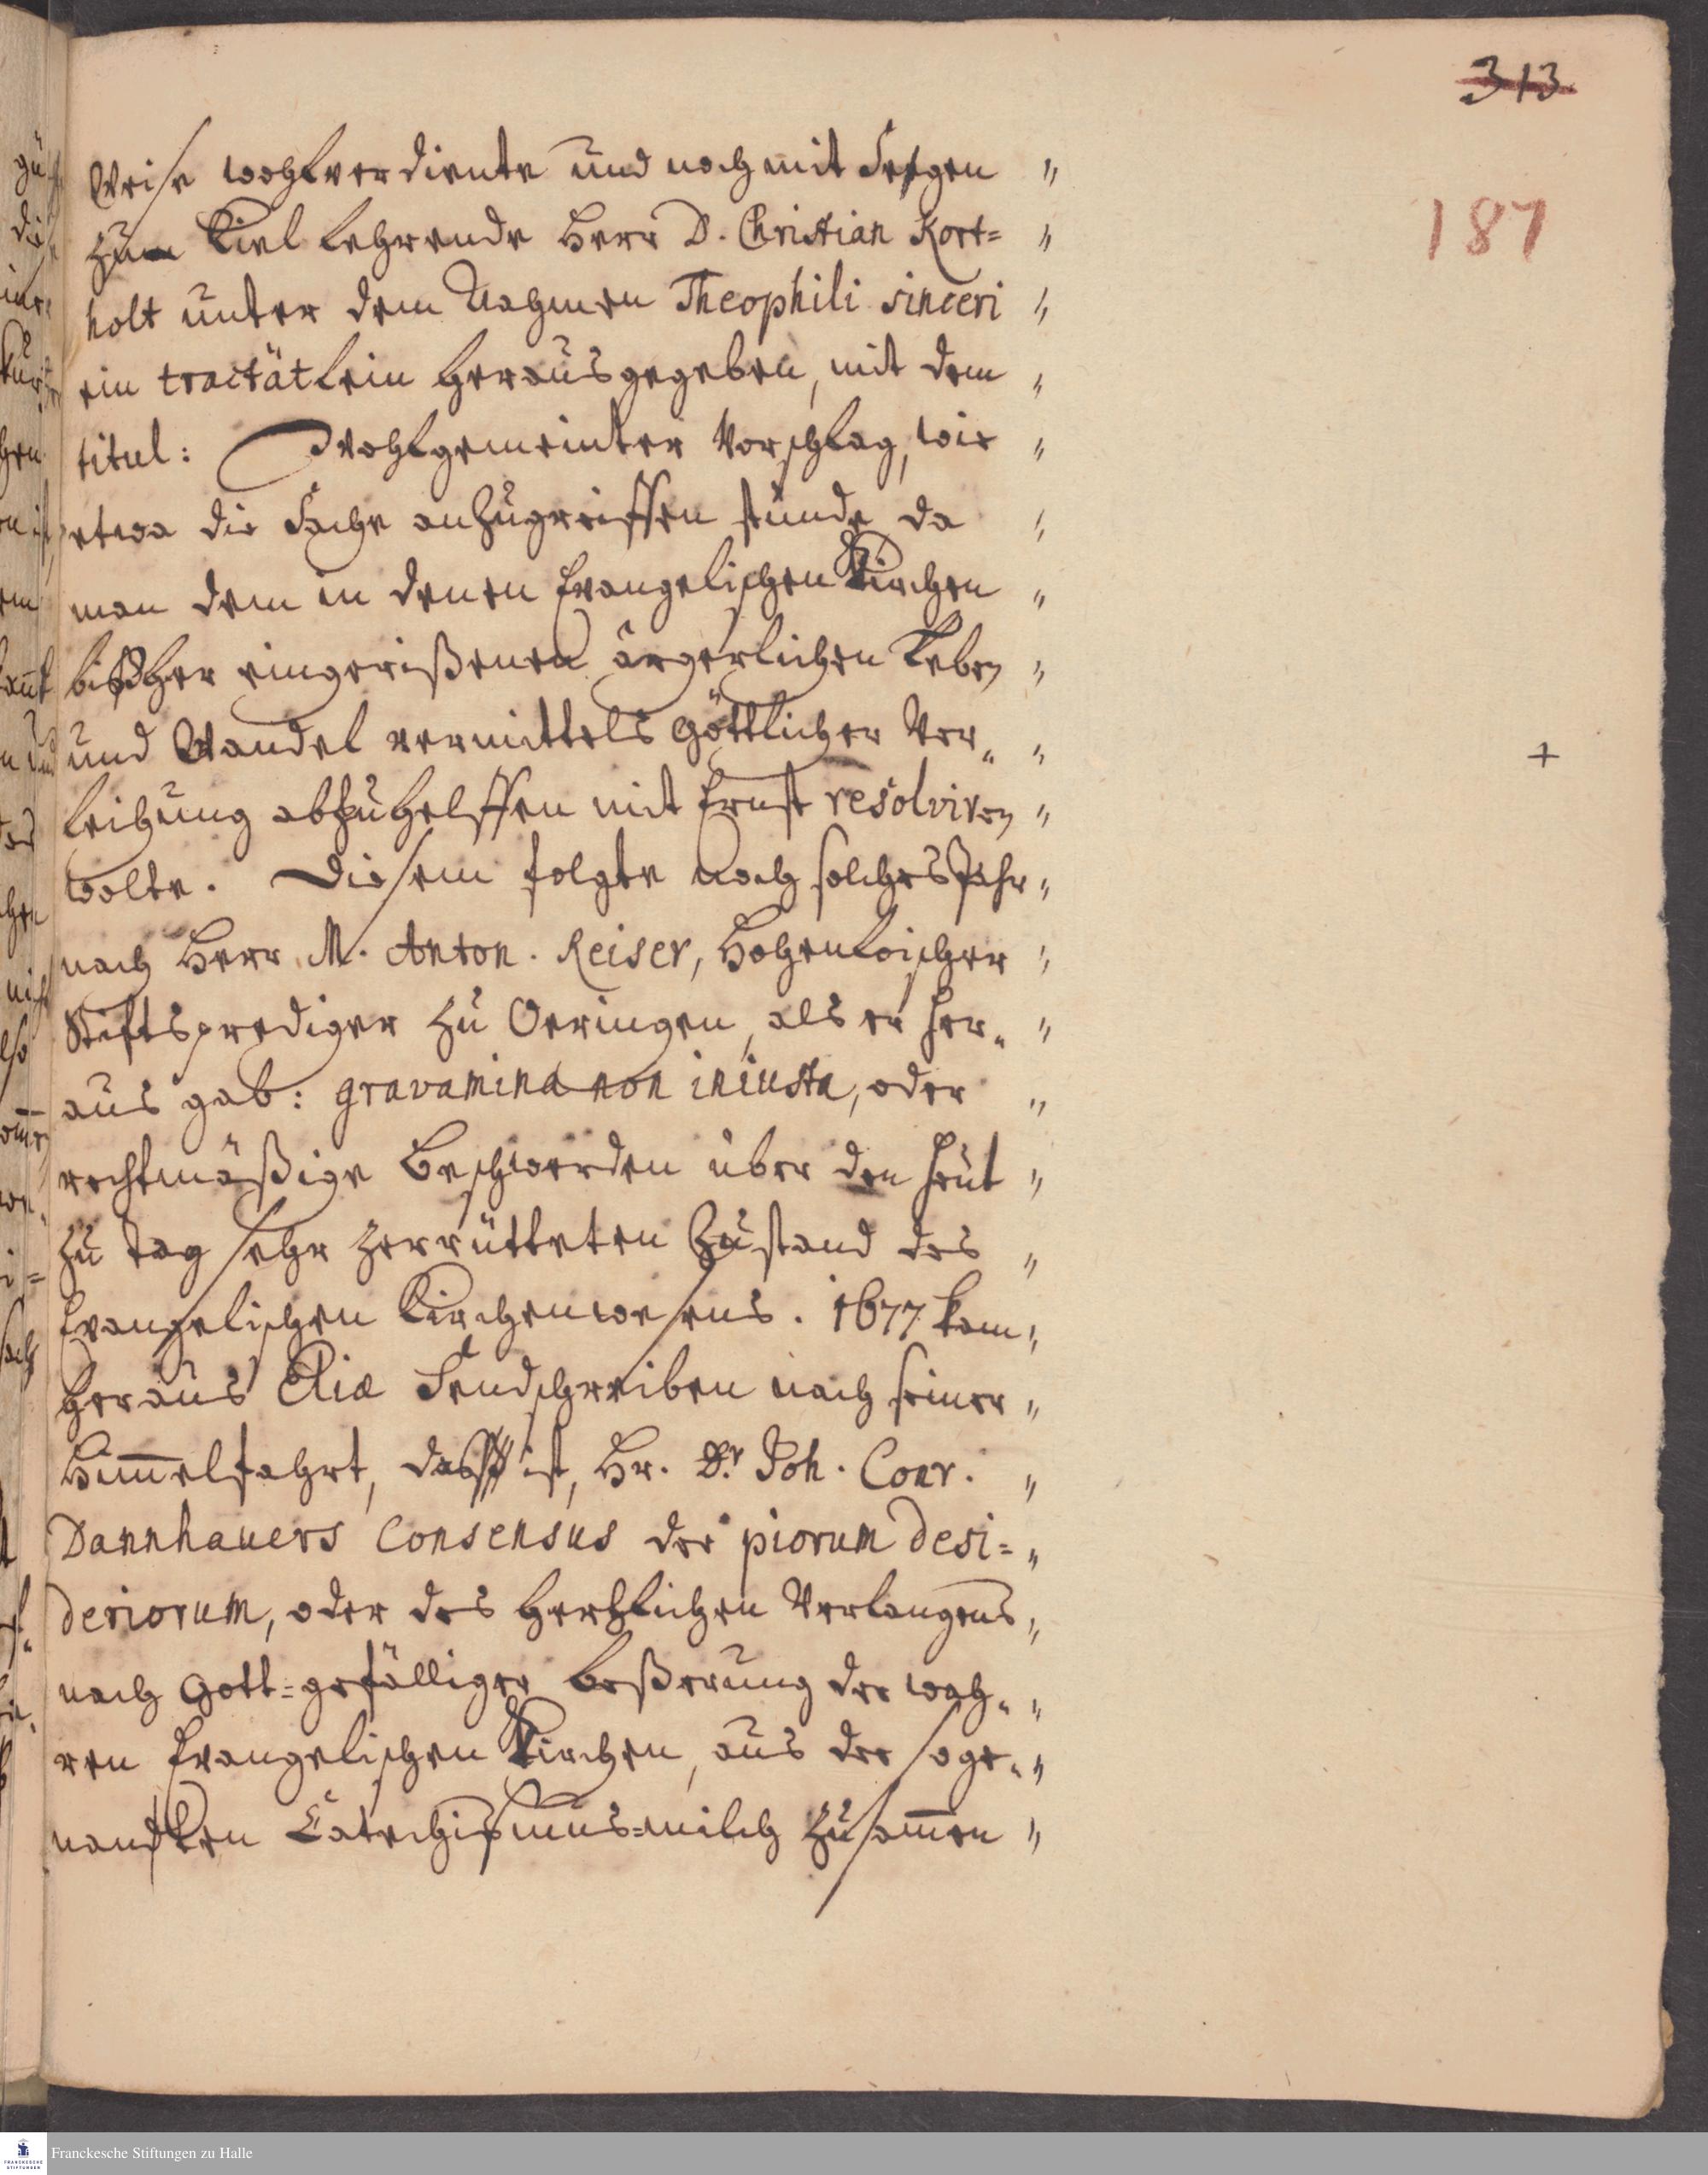 313.
187
Weise wohlverdiente und noch mit Segen "
zum Kiel lehrende Herr D. Christian Kort= "
holt unter dem Nahmen Theophili sinceri "
ein tractätlein herausgegeben, mit dem "
titul: Wohlgemeinter Vorschlag, wie "
etwa die Sache anzugreiffen stünde, da "
man dem in denen Evangelischen Kirchen "
bißher eingerißenen ärgerlichen Leben "
und Wandel vermittels göttlicher Ver„ "
+
leihung abzuhelffen mit Ernst resolviren "
wolte. Diesem folgte noch solches Jahr "
nach Herr M. Anton. Reiser, Hohenloischer "
Stiftsprediger zu Oeringen, als er her„ "
aus gab: gravamina non iniusta, oder "
rechtmäßige Beschwerden über den heut "
zu tag sehr zerrütteten Zustand des "
Evangelischen Kirchenwesens. 1677 kam "
heraus Eliæ Sendschreiben nach seiner "
Him̄elfahrt, das ist, Hr. Dr Joh. Conr. "
Dannhauers Consensus der piorum desi= "
deriorum, oder des hertzlichen Verlangens "
nach Gott=gefälliger beßerung der wah„ "
ren Evangelischen Kirchen, aus der soge„ "
nandten Catechismus=milch zusam̄en "
Franckesche Stiftungen zu Halle